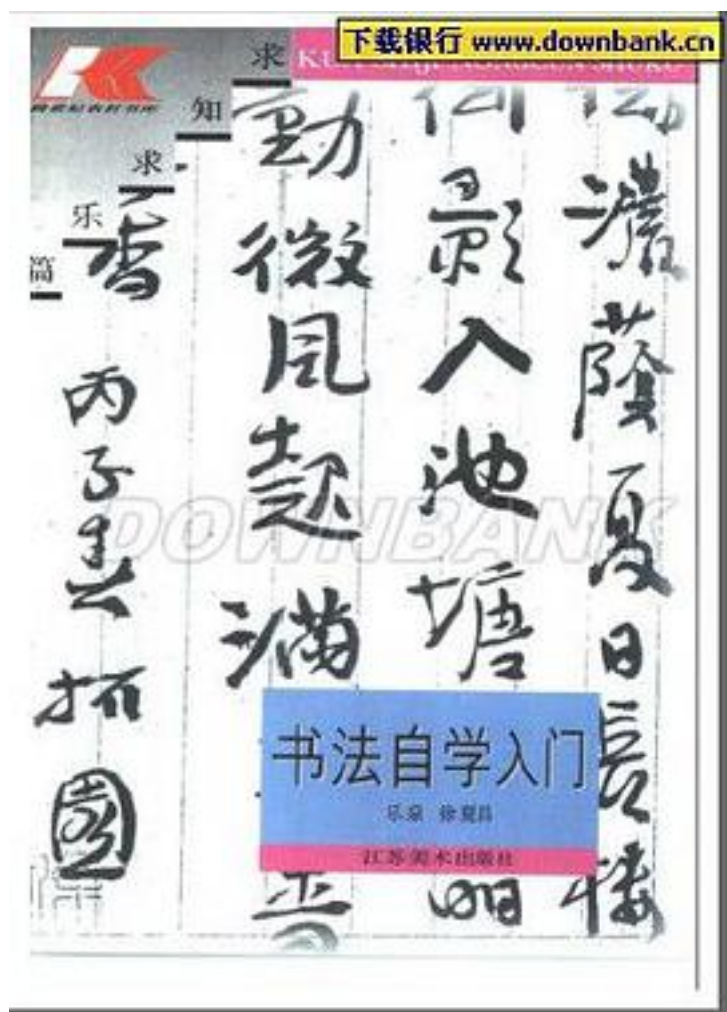 下载银行 www.downbank.cn
跨世纪农村书库
求
知
求
乐
篇
濃蔭夏日長樓
影入池塘
動微風起滿
香
丙子春
DOWNBANK
书法自学入门
乐泉 徐夏昌
江苏美术出版社